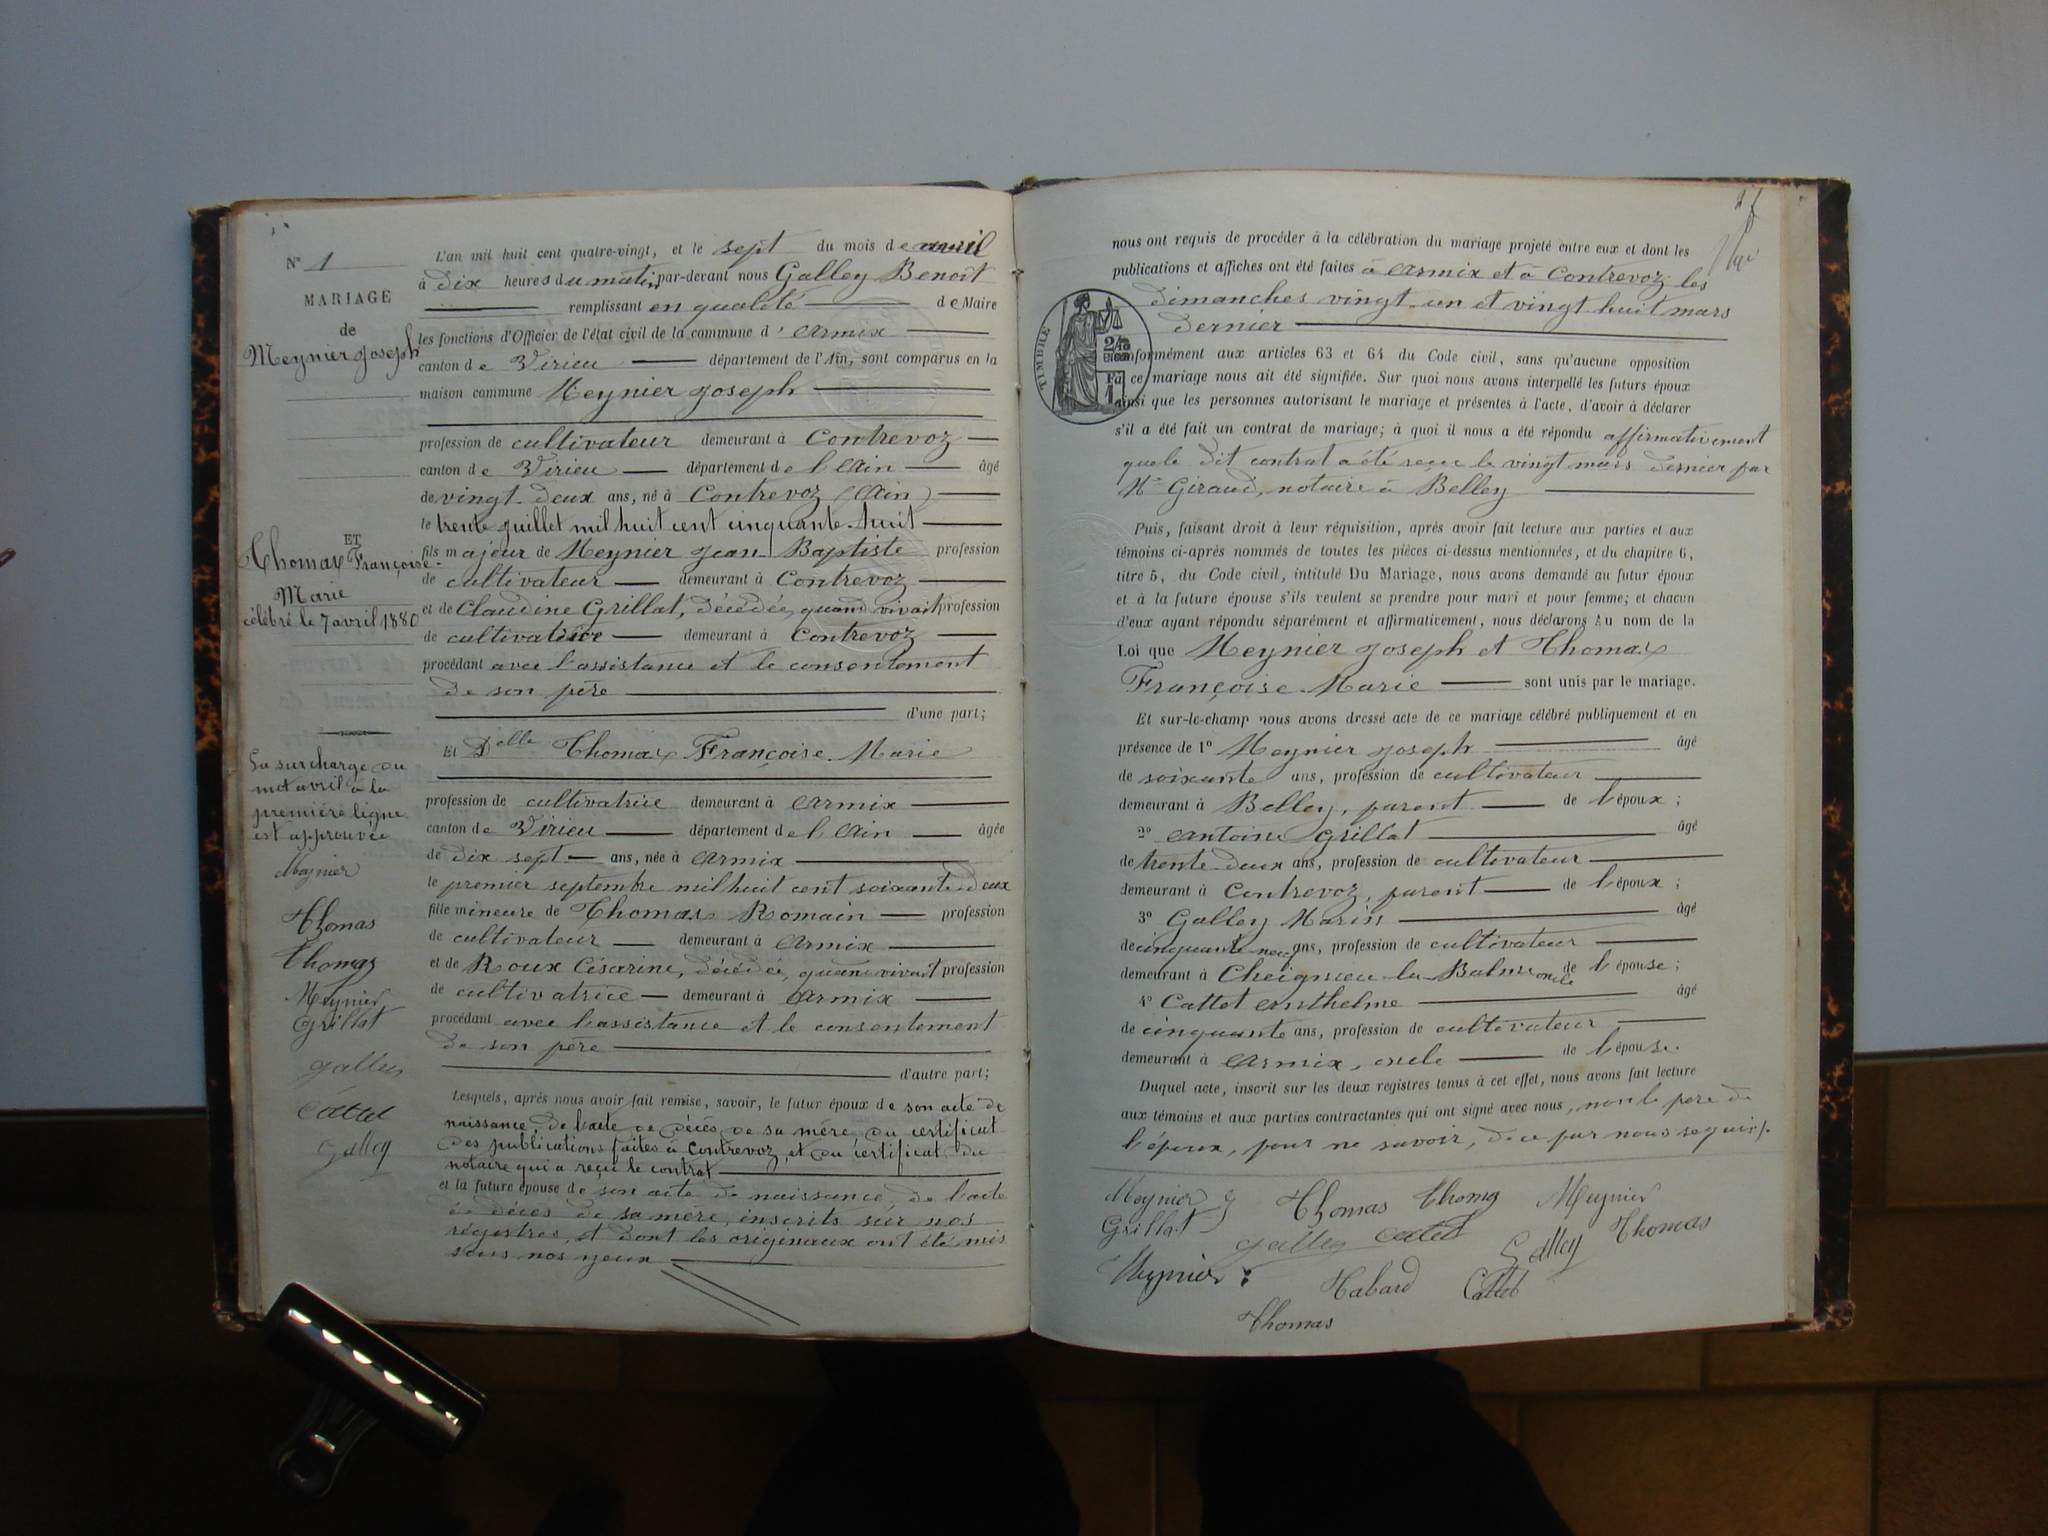 N° 1
MARIAGE
de
Meynier Joseph
ET
Thomas Françoise-
Marie
célébré le 7 avril 1880
La surcharge du
mot avril à la
première ligne
est approuvée
Meynier
Thomas
Thomas
Meynier
Grillat
Galley
Cattet
Galley
L'an mil huit cent quatre-vingt, et le sept du mois de avril
à dix heures du matin, par-devant nous Galley Benoît
remplissant en qualité de Maire
les fonctions d'Officier de l'état civil de la commune d'Armix
canton de Virieu département de l'Ain, sont comparus en la
maison commune Meynier Joseph
profession de cultivateur demeurant à Contrevoz
canton de Virieu département de l'Ain âgé
de vingt-deux ans, né à Contrevoz (Ain)
le trente juillet mil huit cent cinquante-huit
fils majeur de Meynier Jean-Baptiste profession
de cultivateur demeurant à Contrevoz
et de Claudine Grillat, décédée, quand vivait profession
de cultivatrice demeurant à Contrevoz
procédant avec l'assistance et le consentement
de son père
d'une part;
Et Delle Thomas Françoise-Marie
profession de cultivatrice demeurant à Armix
canton de Virieu département de l'Ain âgée
de dix sept ans, née à Armix
le premier septembre mil huit cent soixante-deux
fille mineure de Thomas Romain profession
de cultivateur demeurant à Armix
et de Roux Césarine, décédée, quand vivait profession
de cultivatrice demeurant à Armix
procédant avec l'assistance et le consentement
de son père
d'autre part;
Lesquels, après nous avoir fait remise, savoir, le futur époux de son acte de
naissance, de l'acte de décès de sa mère, du certificat
des publications faites à Contrevoz, et du certificat du
notaire qui a reçu le contrat
et la future épouse de son acte de naissance, de l'acte
de décès de sa mère, inscrits sur nos
régistres, et dont les originaux ont été mis
sous nos yeux
nous ont requis de procéder à la célébration du mariage projeté entre eux et dont les
publications et affiches ont été faites à Armix et à Contrevoz les
dimanches vingt-un et vingt-huit mars
dernier
TIMBRE
conformément aux articles 63 et 64 du Code civil, sans qu'aucune opposition
à ce mariage nous ait été signifiée. Sur quoi nous avons interpellé les futurs époux
ainsi que les personnes autorisant le mariage et présentes à l'acte, d'avoir à déclarer
s'il a été fait un contrat de mariage; à quoi il nous a été répondu affirmativement
que le dit contrat a été reçu le vingt mars dernier par
Me Giraud, notaire à Belley
Puis, faisant droit à leur réquisition, après avoir fait lecture aux parties et aux
témoins ci-après nommés de toutes les pièces ci-dessus mentionnées, et du chapitre 6,
titre 5, du Code civil, intitulé Du Mariage, nous avons demandé au futur époux
et à la future épouse s'ils veulent se prendre pour mari et pour femme; et chacun
d'eux ayant répondu séparément et affirmativement, nous déclarons au nom de la
Loi que Meynier Joseph et Thomas
Françoise-Marie sont unis par le mariage.
Et sur-le-champ nous avons dressé acte de ce mariage célébré publiquement et en
présence de 1° Meynier Joseph âgé
de soixante ans, profession de cultivateur
demeurant à Belley, parent de l'époux;
2° Antoine Grillat âgé
de trente-deux ans, profession de cultivateur
demeurant à Contrevoz, parent de l'époux;
3° Galley Marin âgé
de cinquante-neuf ans, profession de cultivateur
demeurant à Cheignieu-la-Balme oncle de l'épouse;
4° Cattet Anthelme âgé
de cinquante ans, profession de cultivateur
demeurant à Armix, oncle de l'épouse.
Duquel acte, inscrit sur les deux registres tenus à cet effet, nous avons fait lecture
aux témoins et aux parties contractantes qui ont signé avec nous, non le père de
l'époux, pour ne savoir, de ce par nous requis.
Meynier J Thomas Thomas Meynier
Grillat Galley Cattet Galley Thomas
Meynier Cattet
Thomas